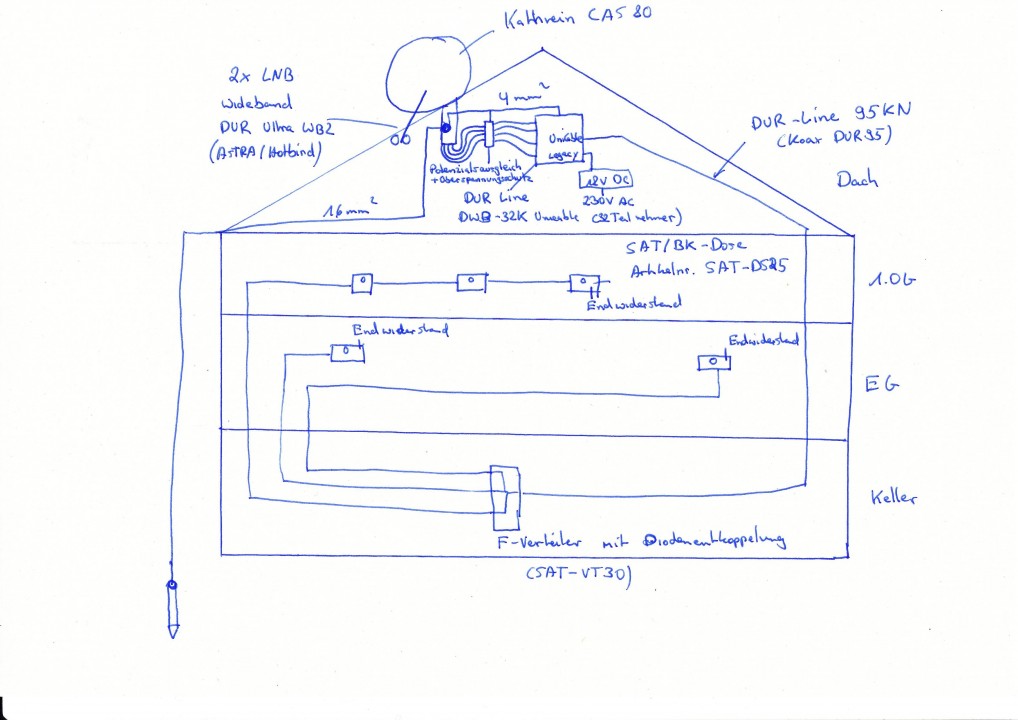 Kathrein CAS 80
2x LNB
wideband
DUR Ultra WB2
(ASTRA/Hotbird)
4mm²
DUR-Line 95KN
(Koax DUR95)
Unicable
Legacy
Potenzialausgleich
+ Überspannungsschutz
12V DC
230V AC
Dach
DUR Line
DWB-32K Unicable (32 Teilnehmer)
16mm²
SAT/BK-Dose
Artikelnr. SAT-DS25
1.OG
Endwiderstand
Endwiderstand
Endwiderstand
EG
Keller
F-Verteiler mit Diodenentkoppelung
(SAT-VT30)